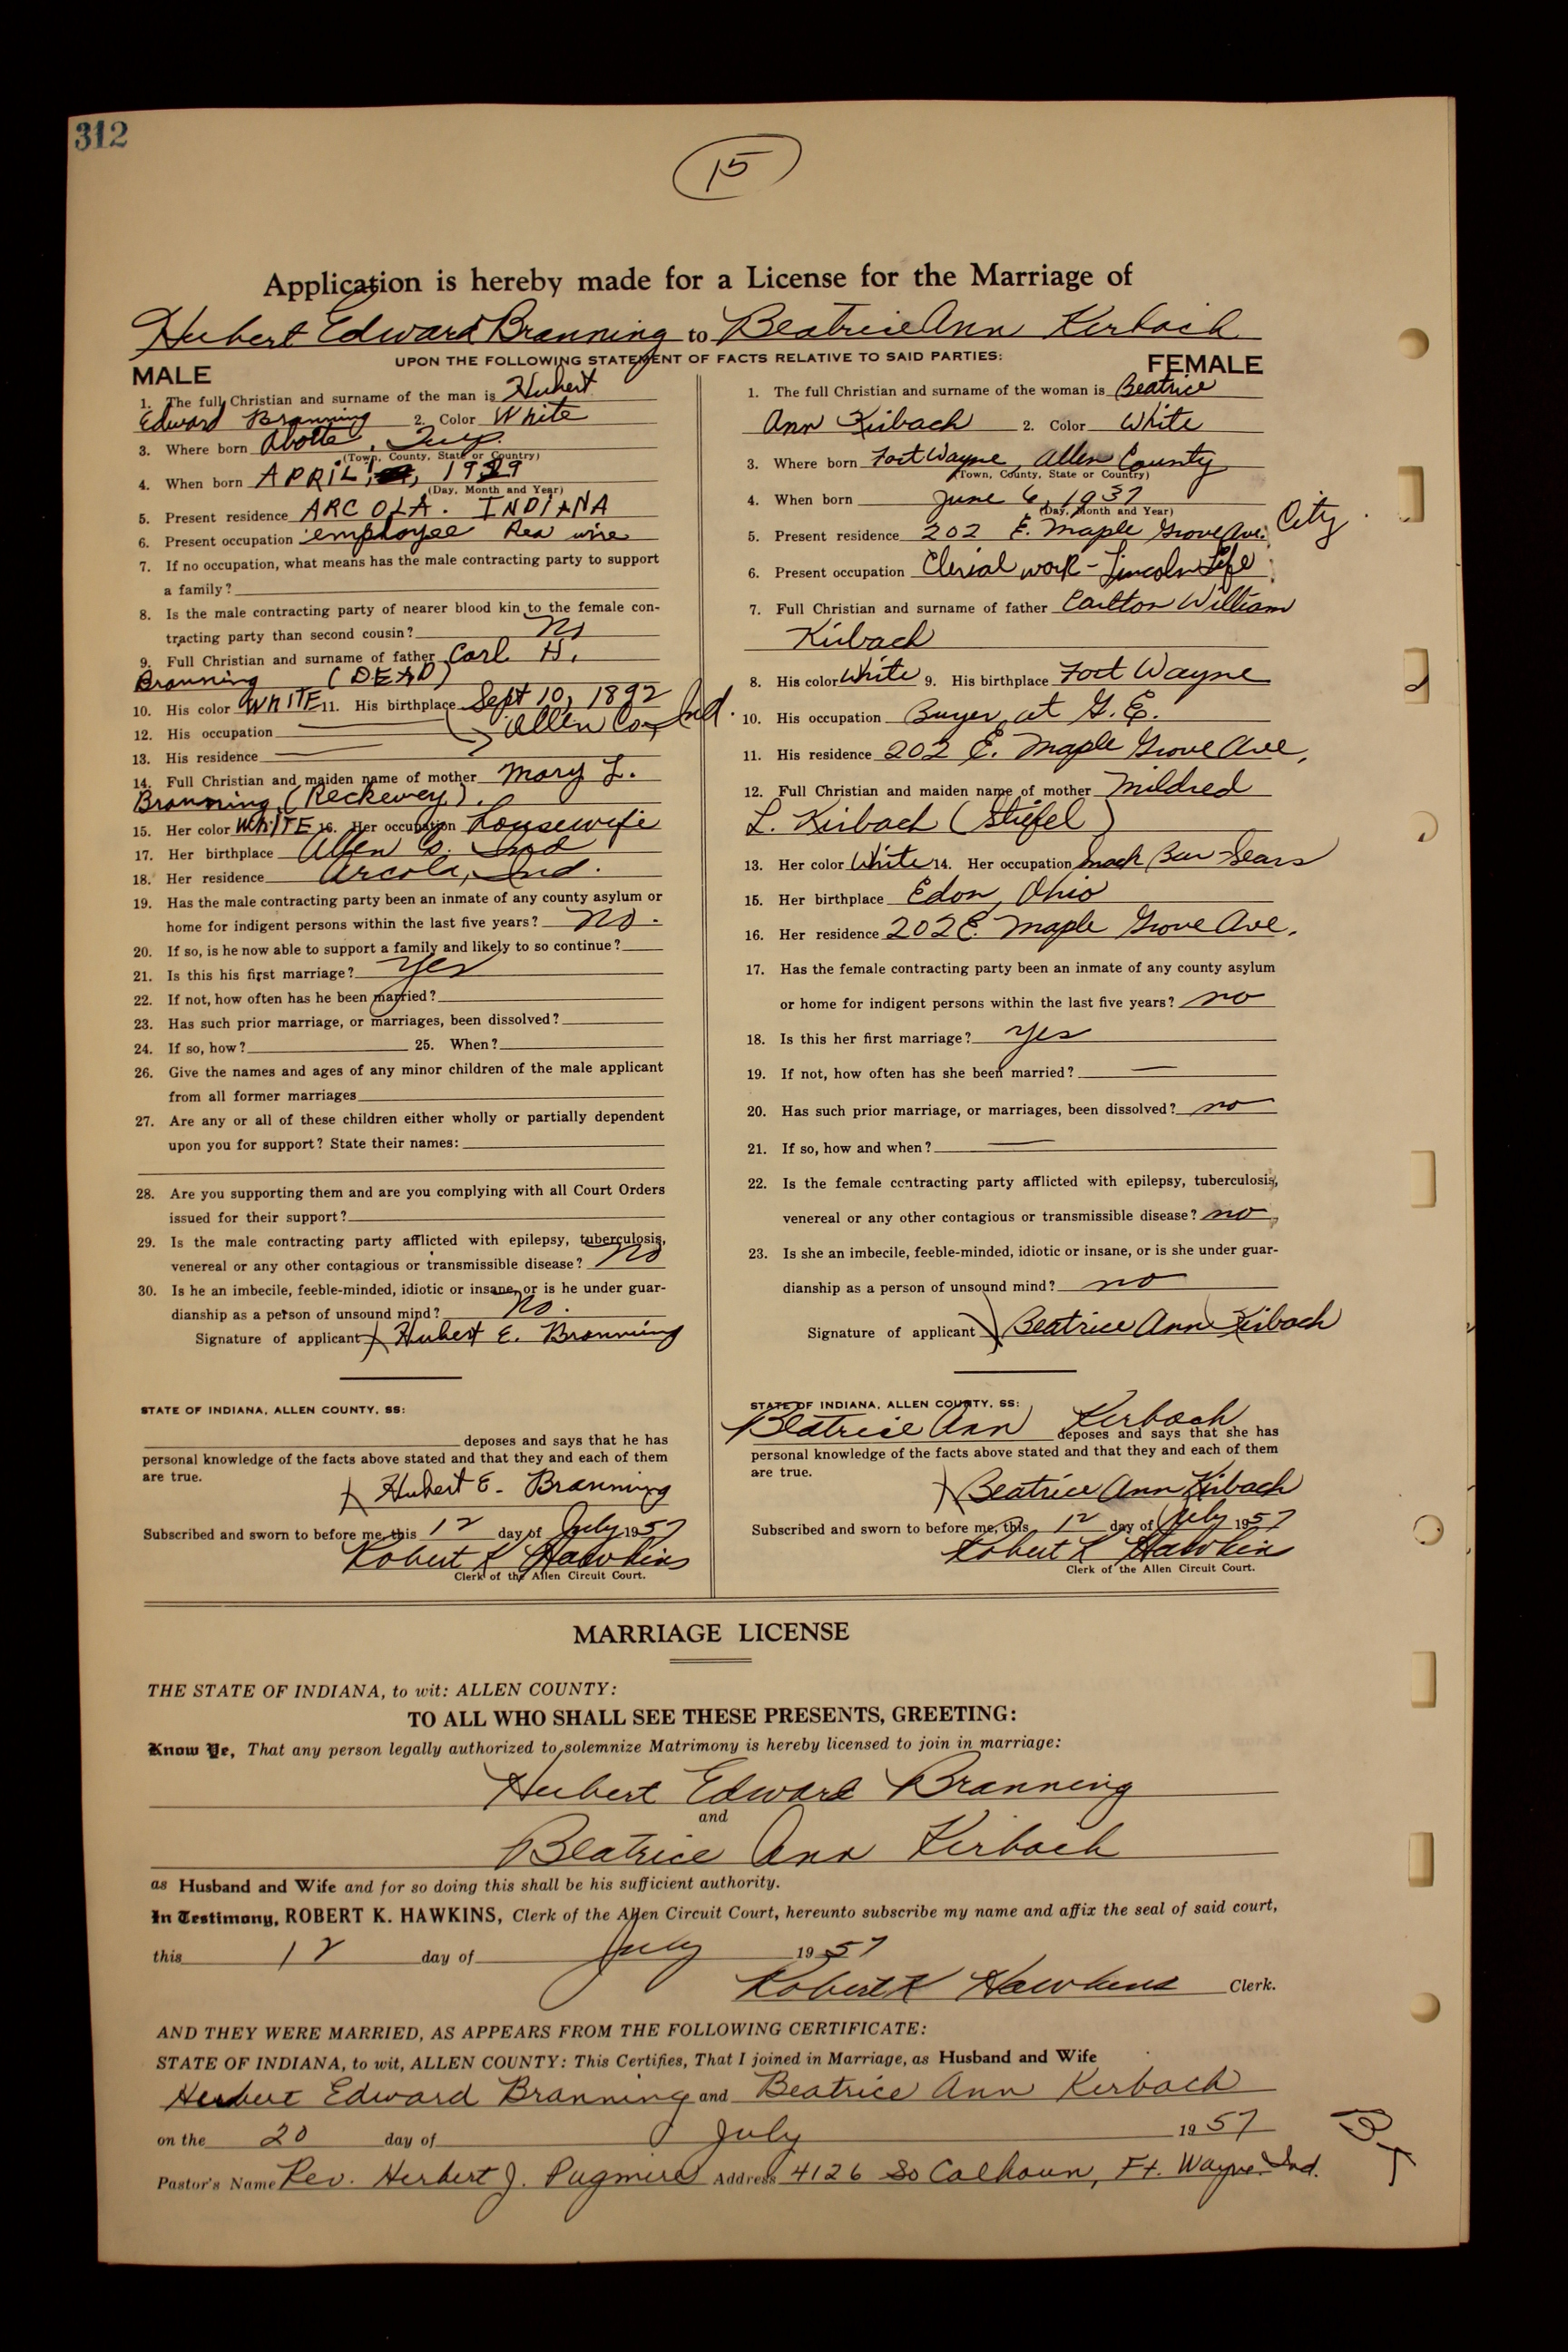 312
15
Application is hereby made for a License for the Marriage of
Hubert Edward Branning to Beatrice Ann Kirbach
UPON THE FOLLOWING STATEMENT OF FACTS RELATIVE TO SAID PARTIES:
MALE
1. The full Christian and surname of the man is Hubert
Edward Branning 2. Color White
3. Where born Aboite, Twp.
(Town, County, State or Country)
4. When born APRIL, 1929
(Day, Month and Year)
5. Present residence ARCOLA. INDIANA
6. Present occupation employee Rea wire
7. If no occupation, what means has the male contracting party to support
a family?
8. Is the male contracting party of nearer blood kin to the female con-
tracting party than second cousin? No
9. Full Christian and surname of father Carl H.
Branning (DEAD)
10. His color WHITE 11. His birthplace Sept 10, 1892
12. His occupation Allen Co, Ind.
13. His residence
14. Full Christian and maiden name of mother Mary L.
Branning (Reckewey).
15. Her color WHITE 16. Her occupation housewife
17. Her birthplace Allen Co. Ind
18. Her residence Arcola, Ind.
19. Has the male contracting party been an inmate of any county asylum or
home for indigent persons within the last five years? no.
20. If so, is he now able to support a family and likely to so continue?
21. Is this his first marriage? Yes
22. If not, how often has he been married?
23. Has such prior marriage, or marriages, been dissolved?
24. If so, how? 25. When?
26. Give the names and ages of any minor children of the male applicant
from all former marriages
27. Are any or all of these children either wholly or partially dependent
upon you for support? State their names:
28. Are you supporting them and are you complying with all Court Orders
issued for their support?
29. Is the male contracting party afflicted with epilepsy, tuberculosis,
venereal or any other contagious or transmissible disease? no
30. Is he an imbecile, feeble-minded, idiotic or insane, or is he under guar-
dianship as a person of unsound mind? no.
Signature of applicant Hubert E. Branning
STATE OF INDIANA, ALLEN COUNTY, SS:
deposes and says that he has
personal knowledge of the facts above stated and that they and each of them
are true.
Hubert E. Branning
Subscribed and sworn to before me, this 12 day of July 1957
Robert K Hawkins
Clerk of the Allen Circuit Court.
FEMALE
1. The full Christian and surname of the woman is Beatrice
Ann Kirbach 2. Color White
3. Where born Fort Wayne, Allen County
(Town, County, State or Country)
4. When born June 6, 1937
(Day, Month and Year)
5. Present residence 202 E. Maple Grove Ave. City
6. Present occupation Clerial work - Lincoln Life
7. Full Christian and surname of father Carlton William
Kirbach
8. His color White 9. His birthplace Fort Wayne
10. His occupation Buyer at G.E.
11. His residence 202 E. Maple Grove Ave,
12. Full Christian and maiden name of mother Mildred
L. Kirbach (Stiefel)
13. Her color White 14. Her occupation Sears
15. Her birthplace Edon, Ohio
16. Her residence 202 E. Maple Grove Ave.
17. Has the female contracting party been an inmate of any county asylum
or home for indigent persons within the last five years? no
18. Is this her first marriage? Yes
19. If not, how often has she been married? —
20. Has such prior marriage, or marriages, been dissolved? no
21. If so, how and when? —
22. Is the female contracting party afflicted with epilepsy, tuberculosis,
venereal or any other contagious or transmissible disease? no
23. Is she an imbecile, feeble-minded, idiotic or insane, or is she under guar-
dianship as a person of unsound mind? no
Signature of applicant Beatrice Ann Kirbach
STATE OF INDIANA, ALLEN COUNTY, SS:
Beatrice Ann Kirbach deposes and says that she has
personal knowledge of the facts above stated and that they and each of them
are true.
Beatrice Ann Kirbach
Subscribed and sworn to before me, this 12 day of July 1957
Robert K Hawkins
Clerk of the Allen Circuit Court.
MARRIAGE LICENSE
THE STATE OF INDIANA, to wit: ALLEN COUNTY:
TO ALL WHO SHALL SEE THESE PRESENTS, GREETING:
Know Ye, That any person legally authorized to solemnize Matrimony is hereby licensed to join in marriage:
Hubert Edward Branning
and
Beatrice Ann Kirbach
as Husband and Wife and for so doing this shall be his sufficient authority.
In Testimony, ROBERT K. HAWKINS, Clerk of the Allen Circuit Court, hereunto subscribe my name and affix the seal of said court,
this 12 day of July 1957
Robert K Hawkins Clerk.
AND THEY WERE MARRIED, AS APPEARS FROM THE FOLLOWING CERTIFICATE:
STATE OF INDIANA, to wit, ALLEN COUNTY: This Certifies, That I joined in Marriage, as Husband and Wife
Hubert Edward Branning and Beatrice Ann Kerbach
on the 20 day of July 1957
Pastor's Name Rev. Herbert J. Pugmire Address 4126 So Calhoun, Ft. Wayne Ind.